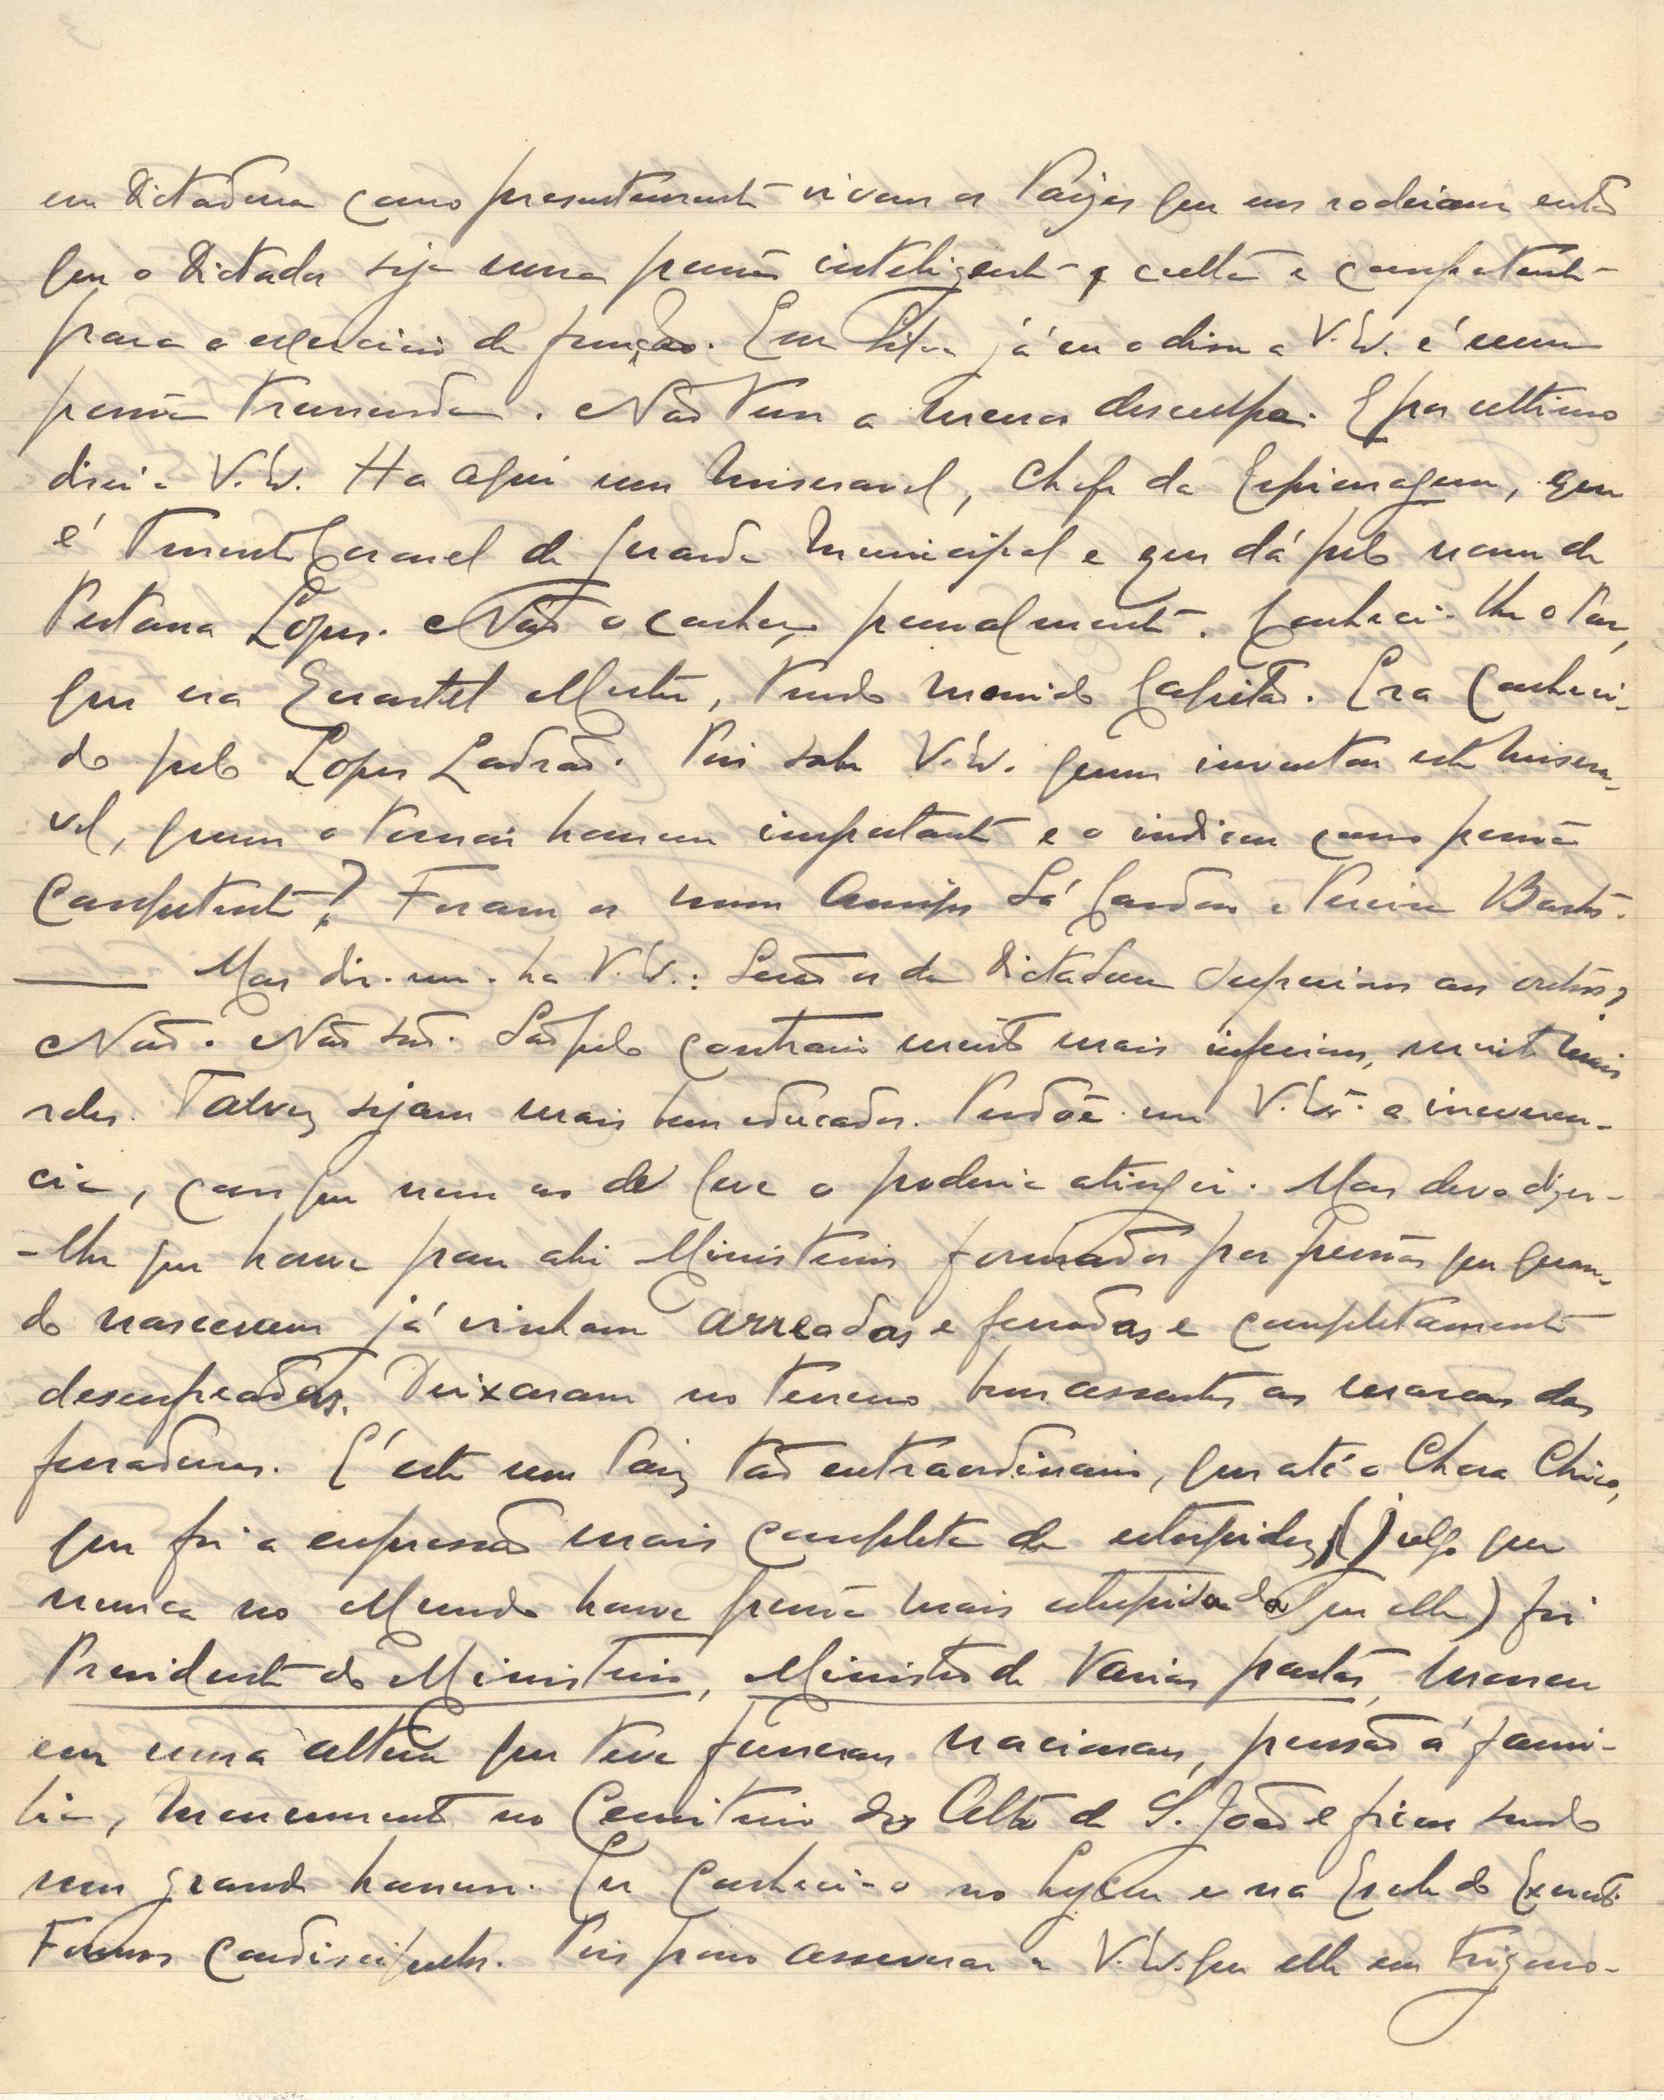 em Dictadura como presentemente vivem os Paizes que nos rodeiam então
que o Dictador seja uma pessoa inteligente, culta e competente
para o exercicio da função. Em já eu o disse a V. Ex. é uma
pessoa tremenda. Não tem a menor desculpa. E por ultimo
direi a V. Ex. Ha aqui um miseravel, Chefe da Espionagem, que
é Tenente Coronel da Guarda Municipal e que dá pelo nome de
Pestana Lopes. Não o conheço pessoalmente. Conheci-lhe o Pae,
que era Quartel Mestre, tendo morrido Capitão. Era conheci-
do pelo Lopes Ladrão. Pois sabe V. Ex. quem inventou este misera-
vel, quem o tornou homem importante e o indicou como pessoa
competente? Foram os meus Amigos Sá Cardoso e Pereira Bastos.
Mas dir-me-ha V. Ex.: Serão os da Dictadura superiores aos outros?
Não. Não são. São pelo contrario muito mais inferiores, muito mais
reles. Talvez sejam mais bem educados. Perdôe-me V. Ex. a irreveren-
cia, com que nem ao de leve o poderia atingir. Mas devo dizer-
-lhe que houve para ahi Ministerios formados por pessoas que quan-
do nasceram já vinham arreadas e ferradas e completamente
desenfreadas. Deixaram no terreno bem assentes as marcas das
ferraduras. É este um Paiz tão extraordinario, que até o Chora Chico,
que foi a expressão mais completa da estupidez (julgo que
nunca no Mundo houve pessoa mais estupida do que elle) foi
Presidente do Ministerio, Ministro de varias pastas, morreu
em uma altura que teve funeraes nacionaes, pensão á fami-
lia, monumento no Cemiterio do Alto de S. João e ficou sendo
um grande homem. Eu conheci-o no Lyceu e na Escola do Exercito
Fomos condiscipulos. Pois posso asseverar a V. Ex. que elle em Trigono-